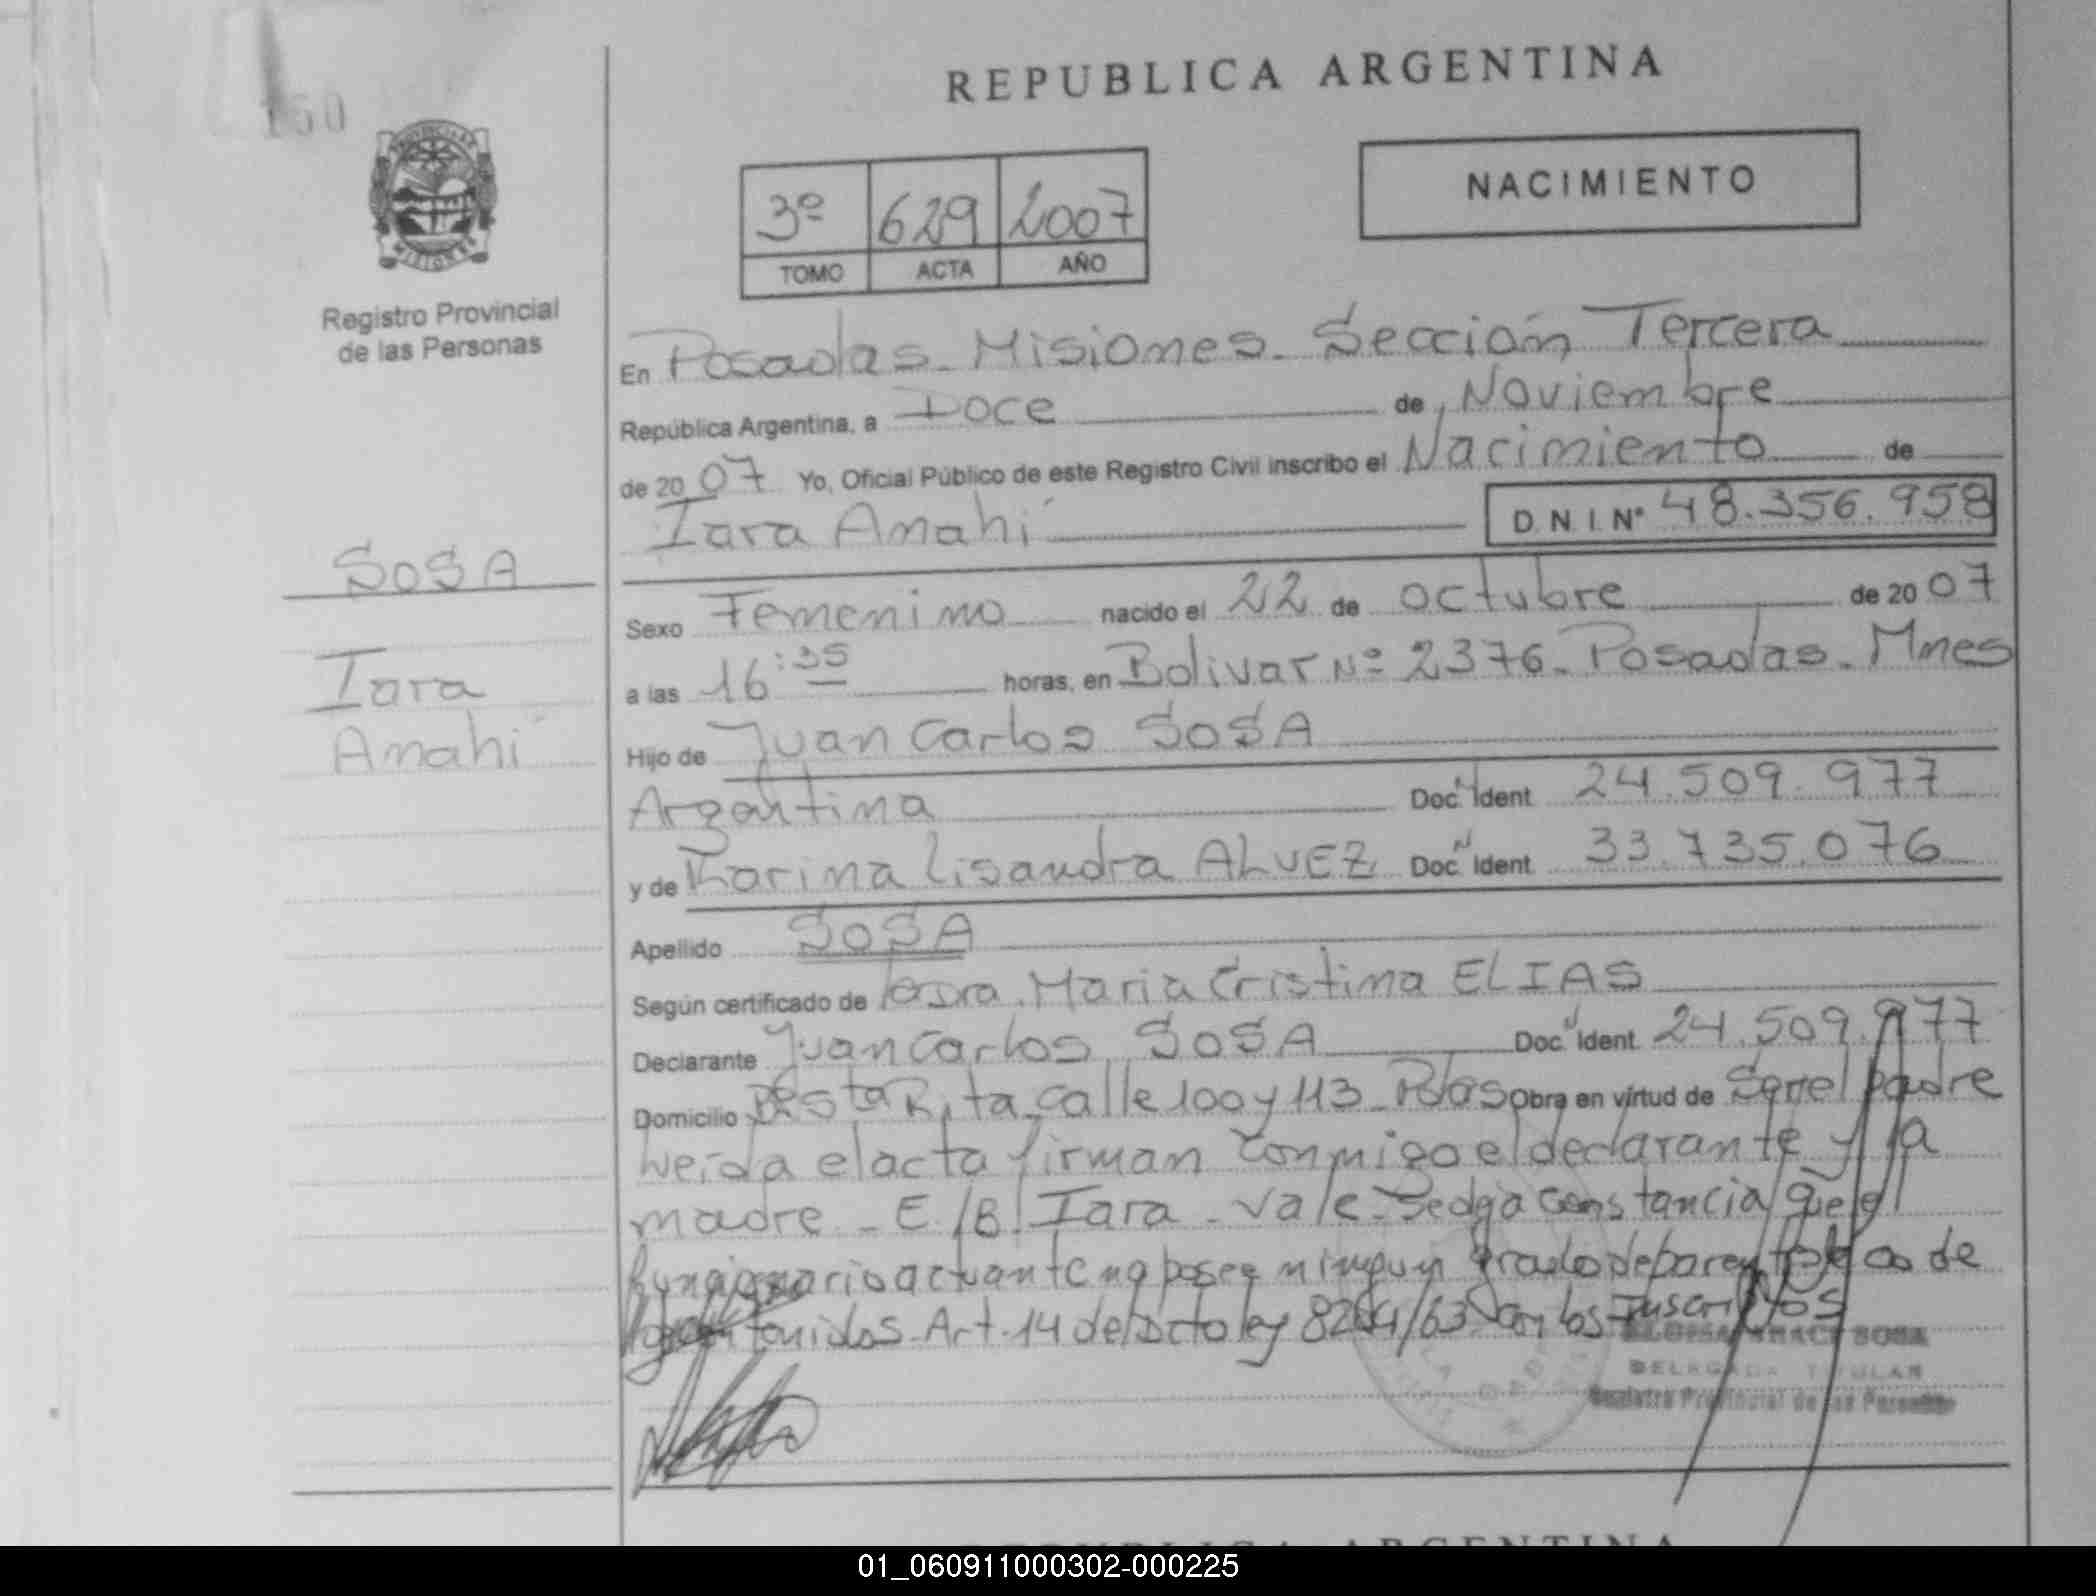 150
REPUBLICA ARGENTINA
NACIMIENTO
3º 629 2007
TOMO ACTA AÑO
PROVINCIA DE
MISIONES
Registro Provincial
de las Personas
En Posadas - Misiones - Sección Tercera
República Argentina, a Doce de Noviembre
de 2007 Yo, Oficial Público de este Registro Civil inscribo el Nacimiento de
Iara Anahí D.N.I. Nº 48.356.958
SOSA
Iara
Anahí
Sexo Femenino nacido el 22 de octubre de 2007
a las 16:35 horas, en Bolivar Nº 2376 - Posadas - Mnes
Hijo de Juan Carlos SOSA
Argentina Doc. Ident 24.509.977
y de Karina Lisandra ALVEZ Doc. Ident 33.735.076
Apellido SOSA
Según certificado de María Cristina ELIAS
Declarante Juan Carlos SOSA Doc. Ident. 24.509.977
Domicilio Sta Rita - calle 100 y 113 - Pdas Obra en virtud de Ser el padre
Leída el acta firman conmigo el declarante y la
madre - E/B! Iara - Vale - Se dja constancia que el
funcionario actuante no posee ningun grado de parentesco de
Art. 14 del Dcto ley 8204/63 con los Inscriptos
SOSA
DELEGADA TITULAR
Registro Provincial de las Personas
REPUBLICA ARGENTINA
01_060911000302-000225